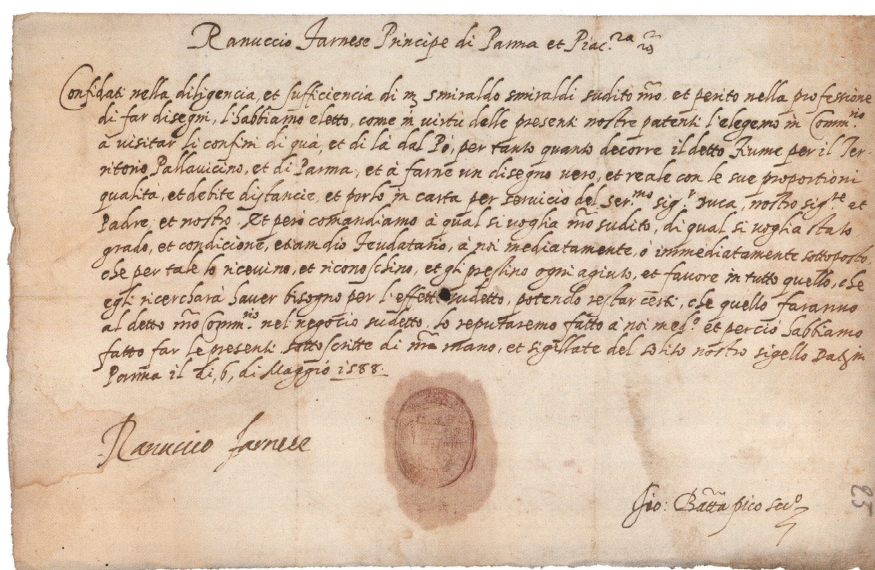 Ranuccio Farnese Principe di Parma et Piac.za
Confidati nella diligencia, et sufficiencia di m. Smiraldo Smiraldi sudito nro, et perito nella professione
di far disegni, l'habbiamo eletto, come in virtù delle presenti nostre patenti l'elegemo in Comm.rio
à visitar li confini di quà, et di là dal Po, per tanto quanto decorre il detto fiume per il Ter-
ritorio Pallavicino, et di Parma, et à farne un disegno vero, et reale con le sue proportioni
qualità, et debite distancie, et porlo in carta per servicio del ser.mo sig.r Duca, nostro sig.re et
Padre, et nostro. Et però comandiamo à qual si voglia nro sudito, di qual si voglia stato
grado, et condicione, etiamdio feudatario, à noi mediatamente, o immediatamente sottoposto,
che per tale lo ricevino, et riconoschino, et gli prestino ogni agiuto, et favore in tutto quello, che
egli ricercharà haver bisogno per l'effetto sudetto, potendo restar certi, che quello faranno
al detto nro Comm.rio nel negocio sudetto, lo reputaremo fatto à noi med.o et perciò habbiamo
fatto far le presenti sottoscritte di nra mano, et sigillate del solito nostro sigello Dat in
Parma il di, 6, di Maggio 1588.
Ranuccio Farnese
Gio: Batta pico sec.o
85